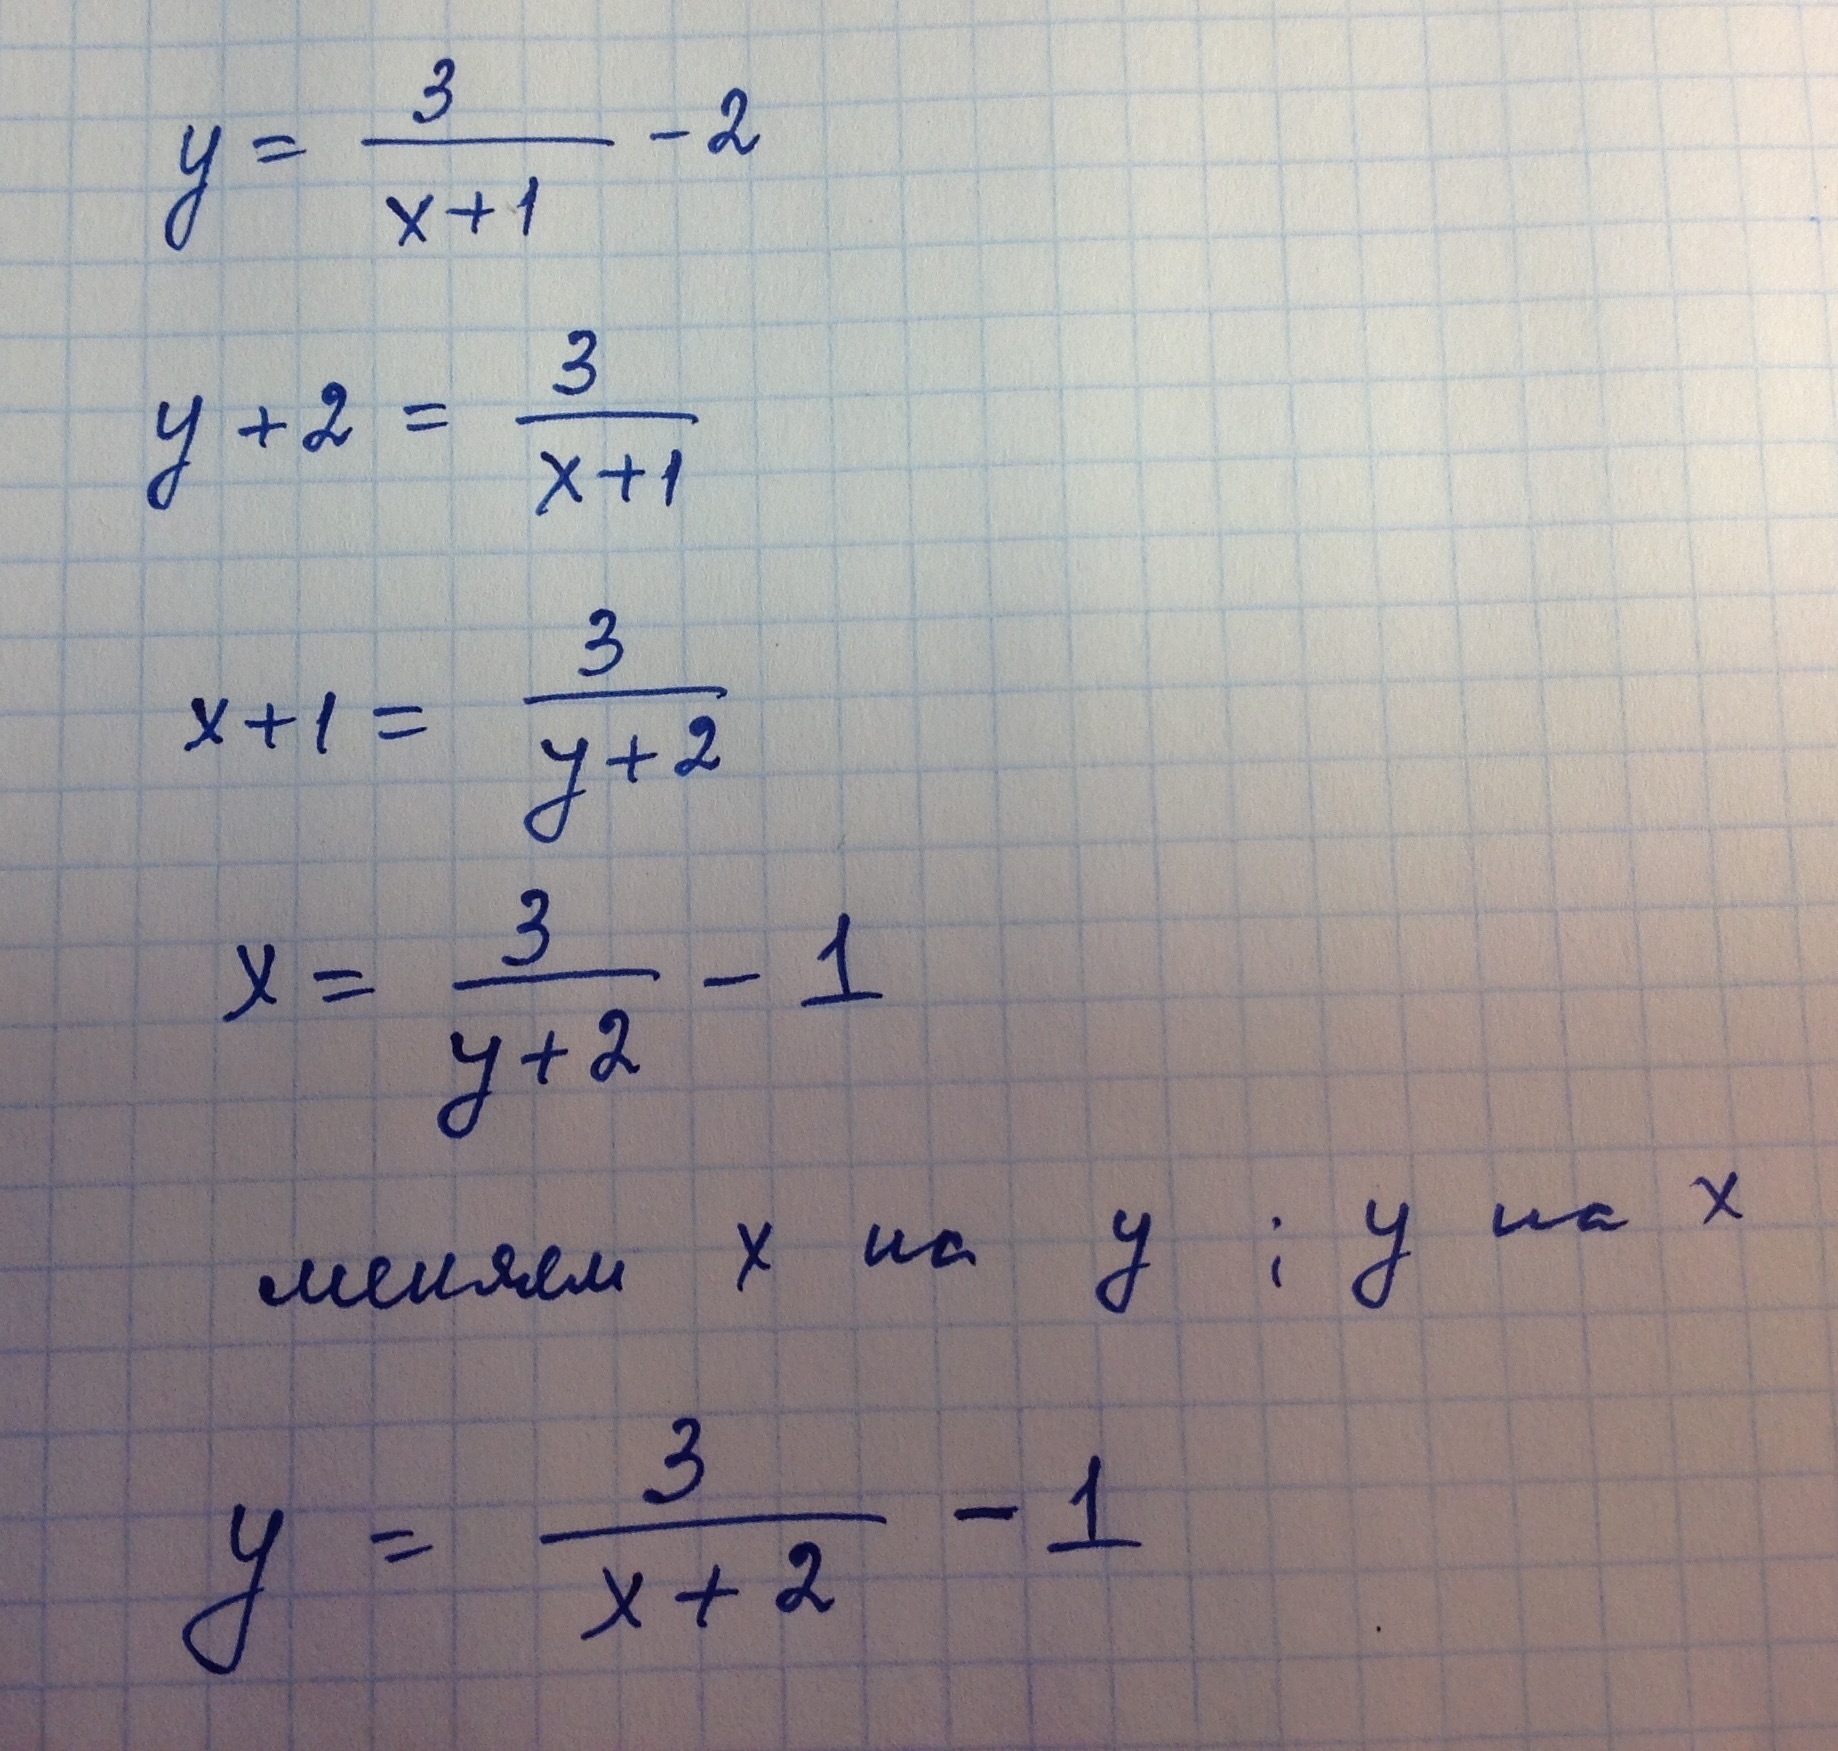 y = 3/(x+1) - 2
y + 2 = 3/(x+1)
x+1 = 3/(y+2)
x = 3/(y+2) - 1
меняем x на y ; y на x
y = 3/(x+2) - 1